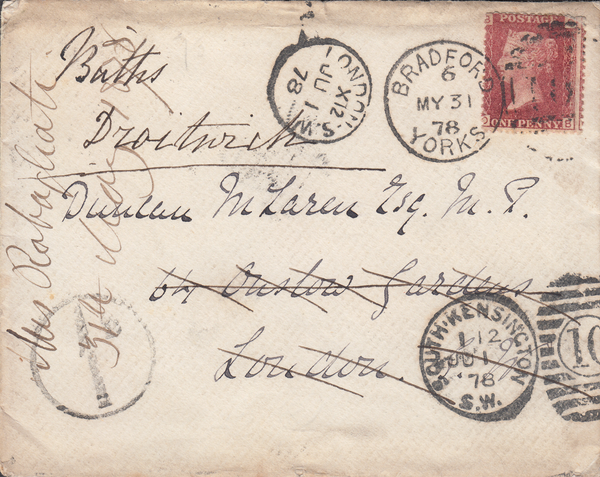 Baths
Droitwich
Duncan McLaren Esq. M. P.
64 Onslow Gardens
London.
Mrs Rabagliati
31st May 1878
LONDON. S.W.
X12
JU 1
78
BRADFORD YORKS
6
MY 31
78
POSTAGE
ONE PENNY
SOUTH-KENSINGTON S.W.
JU 1
78
10
1